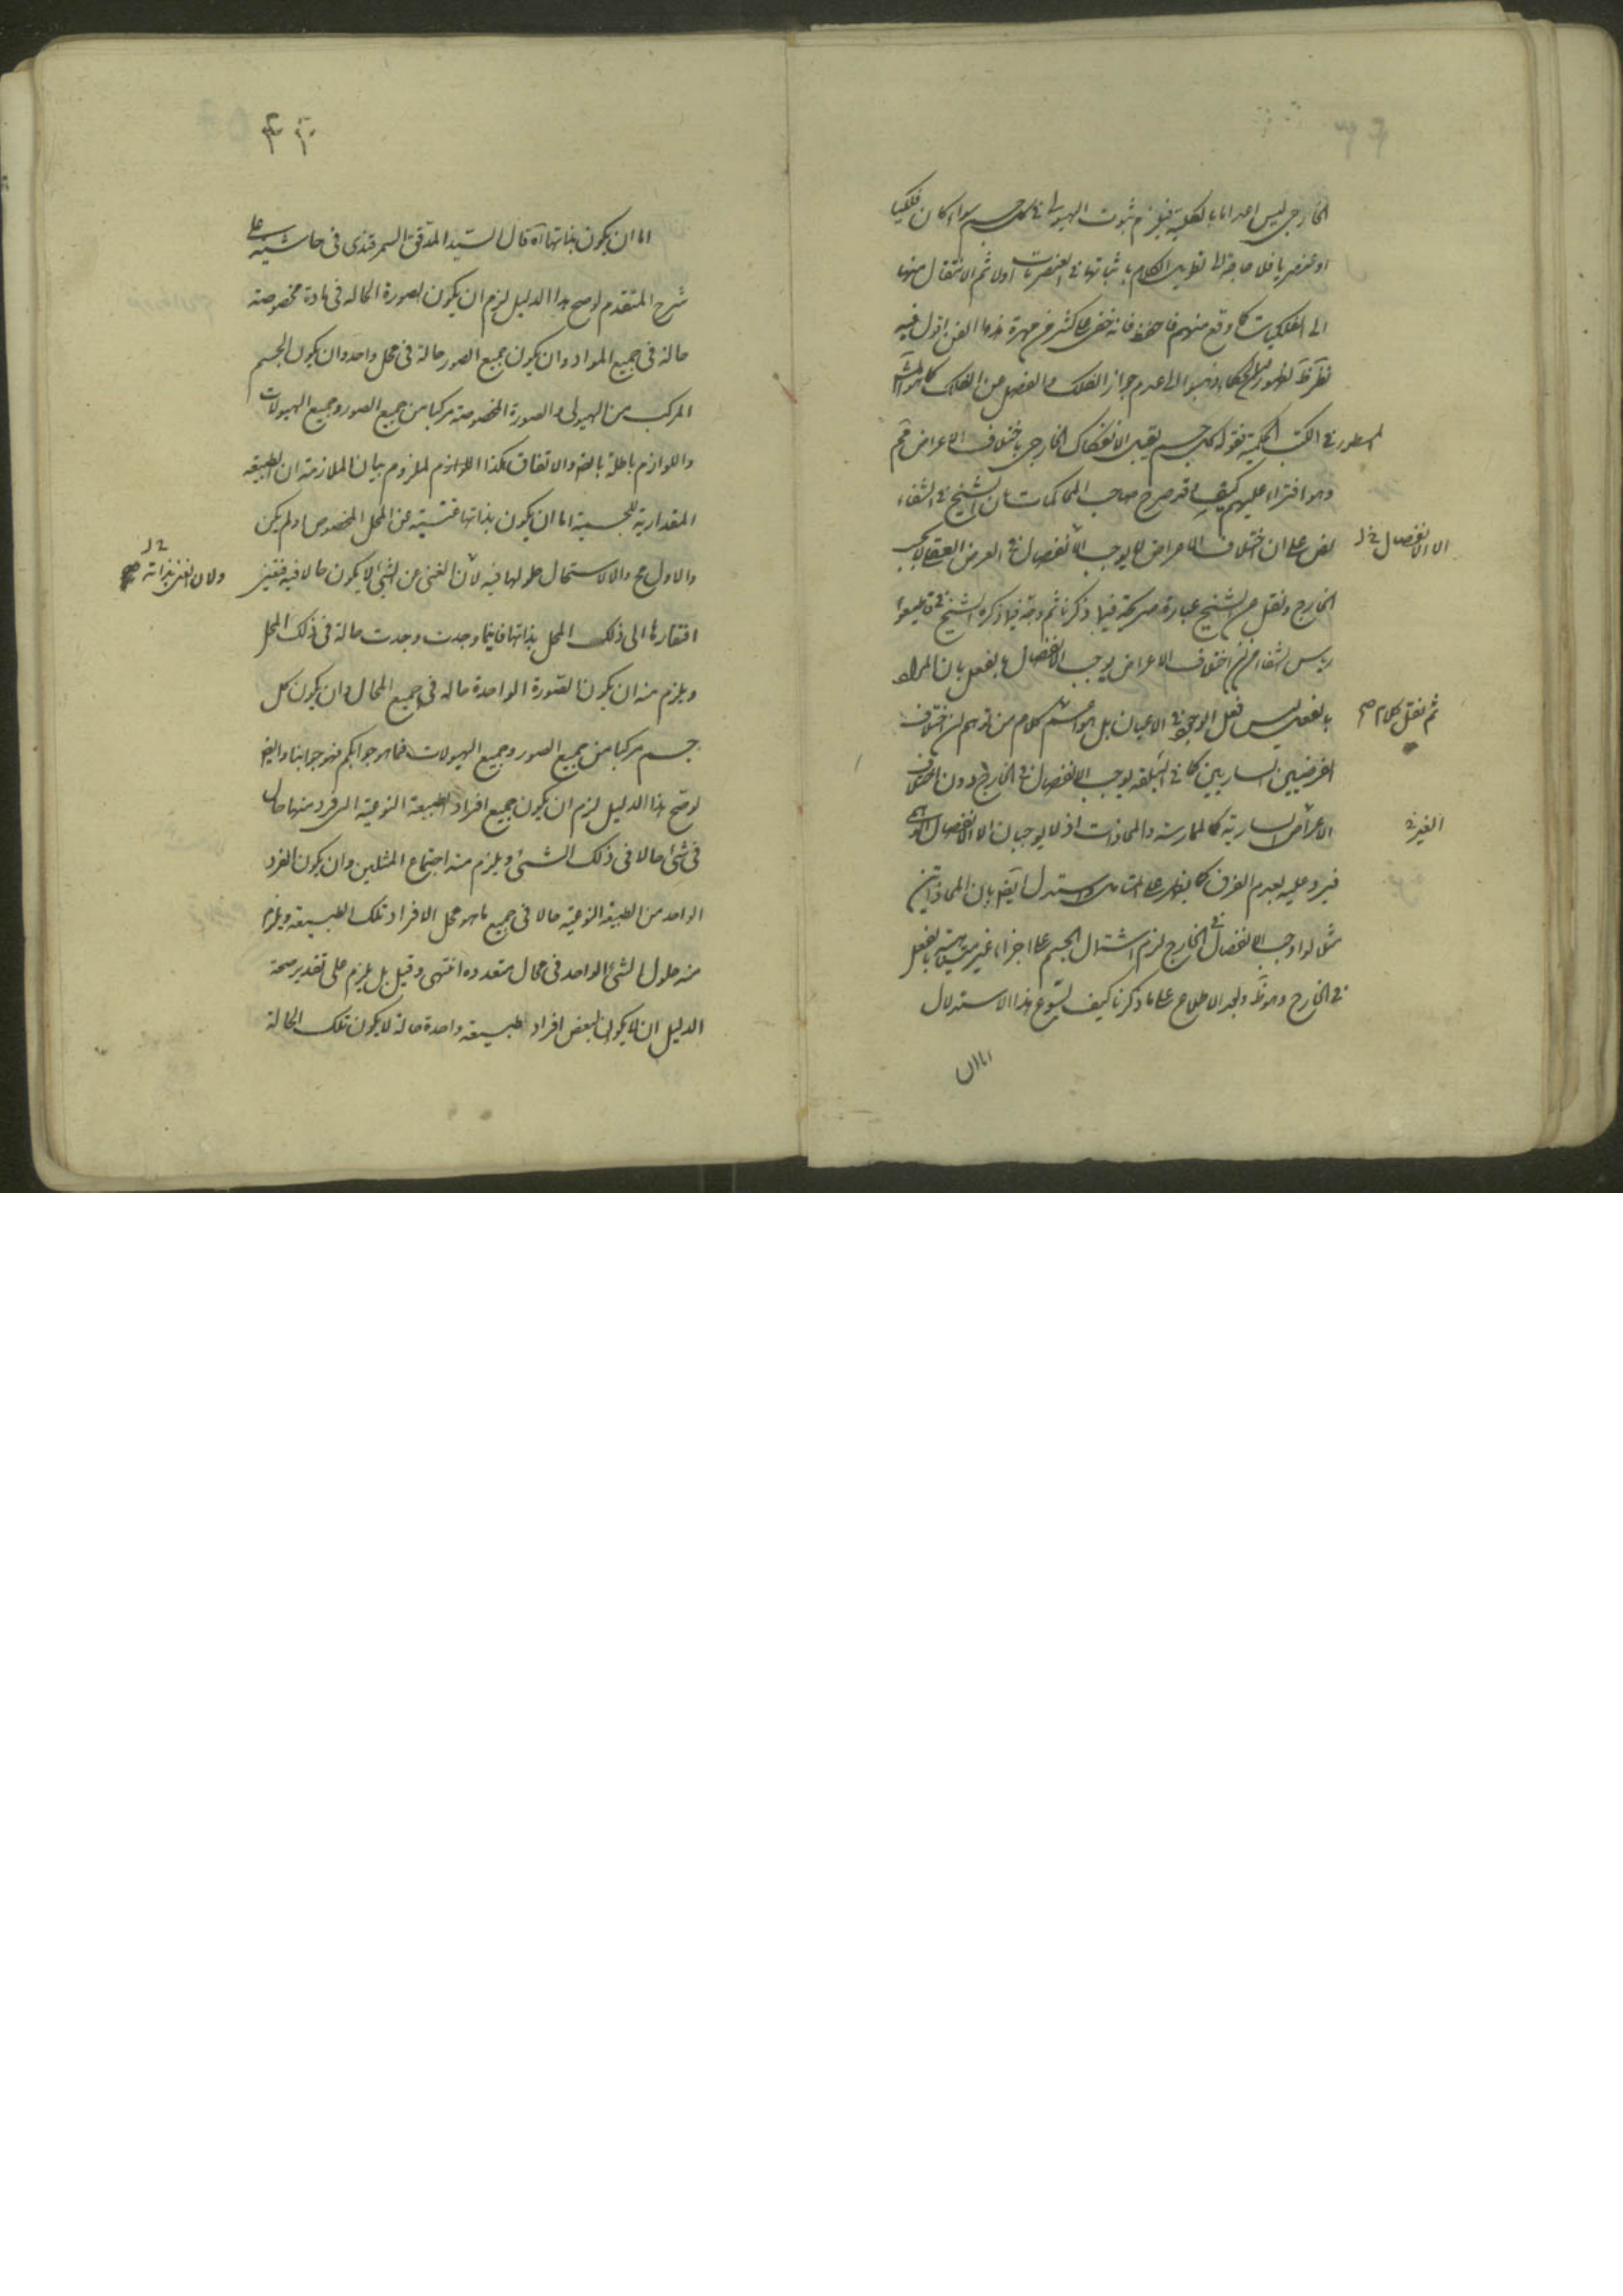 الخارجي ليس امرا بالكلية فيلزم ثبوت الهيولى في كل جسم سواء كان فلكيا
او عنصريا فلا حاجة الى تطويل الكلام باثباتها في العنصريات اولا ثم الانتقال منها
الى الفلكيات كما وقع منهم فاحفظ فانه خفي على كثير من مهرة هذا الفن اقول فيه
نظر لظهور ان الحكماء ذهبوا الى عدم جواز الفلك والفصل من الفلك كما هو
المسطور في الكتب الحكمية فقوله كل جسم يقبل الانفكاك الخارجي باختلاف الاعراض
وهو افتراء عليهم كيف وقد صرح صاحب المحاكمات بان الشيخ في الشفاء
نص على ان اختلاف الاعراض لا يوجب الانفصال في
الا الانفصال في
الخارج ونقل من الشيخ عبارة صريحة فيما ذكرنا ثم وجه فيما ذكره الشيخ في
الشفا من ان اختلاف الاعراض يوجب الانفصال بالفعل بان المراد
بالفعل ليس فعل الوجود في الاعيان بل هو كلام من توهم ان اختلاف
ثم نقل كلام صح
العرضيين الساريين كما في البلقة يوجب الانفصال في الخارج دون اختلاف
الاعراض السارية كالمماسة والمحاذات اذ لا يوجبان الا الانفصال
الغير
فيرد عليه بعدم الفرق كما يظهر على المتامل واستدل ايضا بان المحاذاتين
مثلا لو اوجب الانفصال في الخارج لزم اشتمال الجسم على اجزاء غير متناهية بالفعل
في الخارج وهو بط وبعد الاطلاع على ما ذكرنا كيف يسوغ هذا الاستدلال
اما ان
اما ان يكون بذاتها اه قال السيد المدقق السمرقندى فى حاشيته على
شرح المتقدم لو صح هذا الدليل لزم ان يكون الصورة الحالة فى مادة مخصوصة
حالة فى جميع المواد وان يكون جميع الصور حالة فى محل واحد وان يكون الجسم
المركب من الهيولى والصورة المخصوصة مركبا من جميع الصور وجميع الهيولات
واللوازم باطلة بالضرورة والاتفاق فكذا الملزوم بيان الملازمة ان الطبيعة
المقدارية الجسمية اما ان يكون بذاتها غنية عن المحل المخصوص او لم يكن
والاول مح والا لاستحال حلولها فيه لان الغنى عن الشئ لا يكون حالا فيه فتعين
ولان الغنى بذاته صح
افتقارها الى ذلك المحل بذاتها فاينما وجدت وجدت حالة فى ذلك المحل
ويلزم منه ان يكون الصورة الواحدة حالة فى جميع المحال وان يكون كل
جسم مركبا من جميع الصور وجميع الهيولات فما هو جوابكم فهو جوابنا وايضا
لو صح هذا الدليل لزم ان يكون جميع افراد الطبيعة النوعية التى فرد منها حال
فى شئ حالا فى ذلك الشئ ويلزم منه اجتماع المثلين وان يكون الفرد
الواحد من الطبيعة النوعية حالا فى جميع ما هو محل الافراد تلك الطبيعة ويلزم
منه حلول الشئ الواحد فى محال متعددة انتهى وقيل بل يلزم على تقدير صحة
الدليل ان لا يكون لبعض افراد طبيعة واحدة حالة لا يكون تلك الحالة